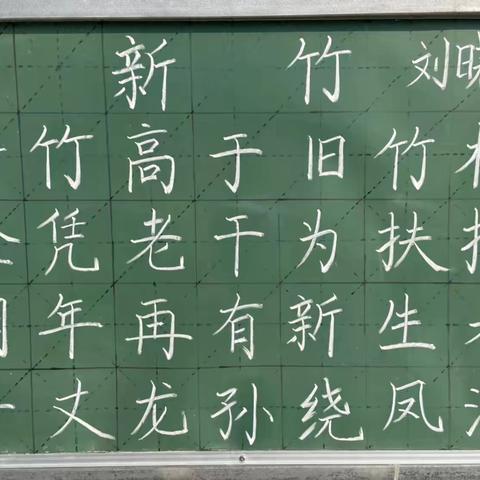 新竹 刘
竹高于旧竹
凭老干为扶
年再有新生
丈龙孙绕凤